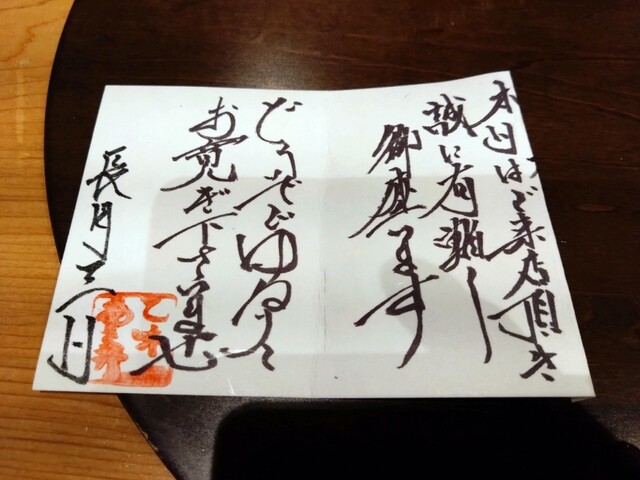 本日はご来店頂き
誠に有難し
御座います
どうぞごゆるりと
お寛ぎ下さいませ
長月三日